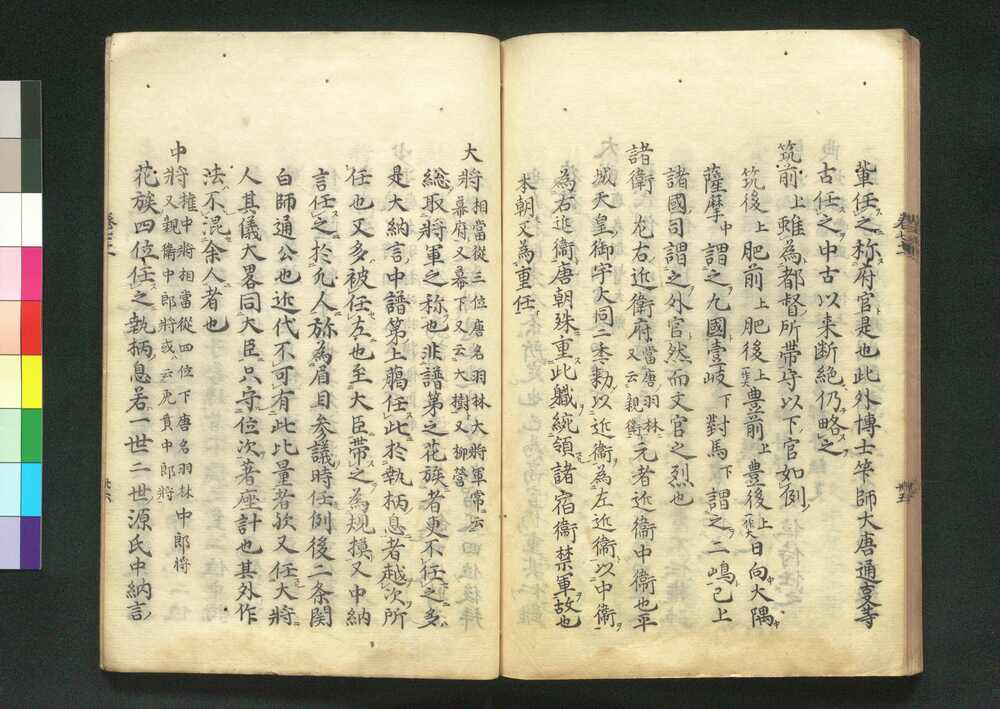 輩任之称府官是也此外博士竿師大唐通夏等
古任之中古以来断絶仍略之
筑前上雖為都督所帯守以下官如例
筑後上肥前上肥後上一作大豊前上豊後上一作大日向大隅
薩摩中謂之九國壹岐下對馬下謂之二嶋已上
諸國司謂之外官然而文官之烈也
諸衛左右近衛府當唐羽林又云親衛元者近衛中衛也平
城天皇御宇大同二年勅以近衛為左近衛以中衛
為右近衛唐朝殊重此軄統領諸宿衛禁軍故也
本朝又為重任
大將相當從三位唐名羽林大將軍常云幕府又幕下又云大樹又柳營
総取將軍之称也非譜第之花族者更不任之多
是大納言中譜第上臈任此於執柄息者越次所
任也又多被任左也至大臣帯之為規摸又中納
言任之於凡人称為眉目参議時任例後二条関
白師通公也近代不可有此比量者欤又任大將
人其儀大畧同大臣只守位次著座計也其外作
法不混余人者也
中將權中將相當從四位下唐名羽林中郎將又親衛中郎將或云虎賁中郎將
花族四位任之執柄息若一世二世源氏中納言